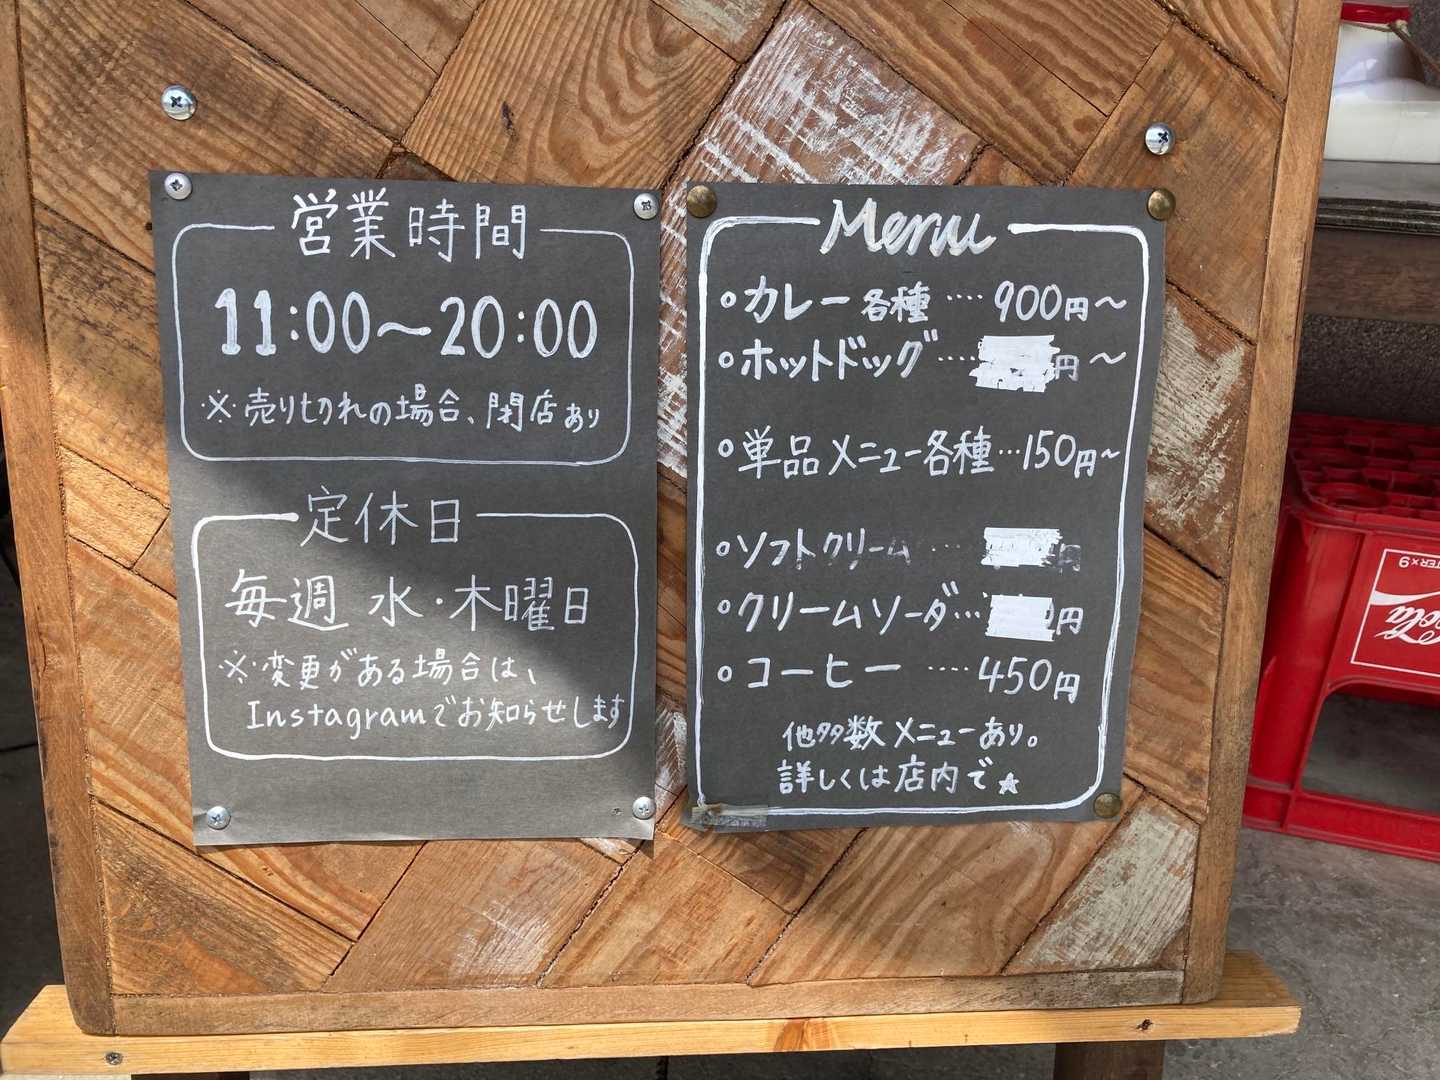 営業時間
11:00～20:00
※売り切れの場合、閉店あり
定休日
毎週 水・木曜日
※変更がある場合は、
Instagramでお知らせします
Menu
カレー各種 ‥‥ 900円～
ホットドッグ ‥‥ 円～
単品メニュー各種 … 150円～
ソフトクリーム ‥‥ 円
クリームソーダ ‥‥ 円
コーヒー ‥‥ 450円
他多数メニューあり。
詳しくは店内で★